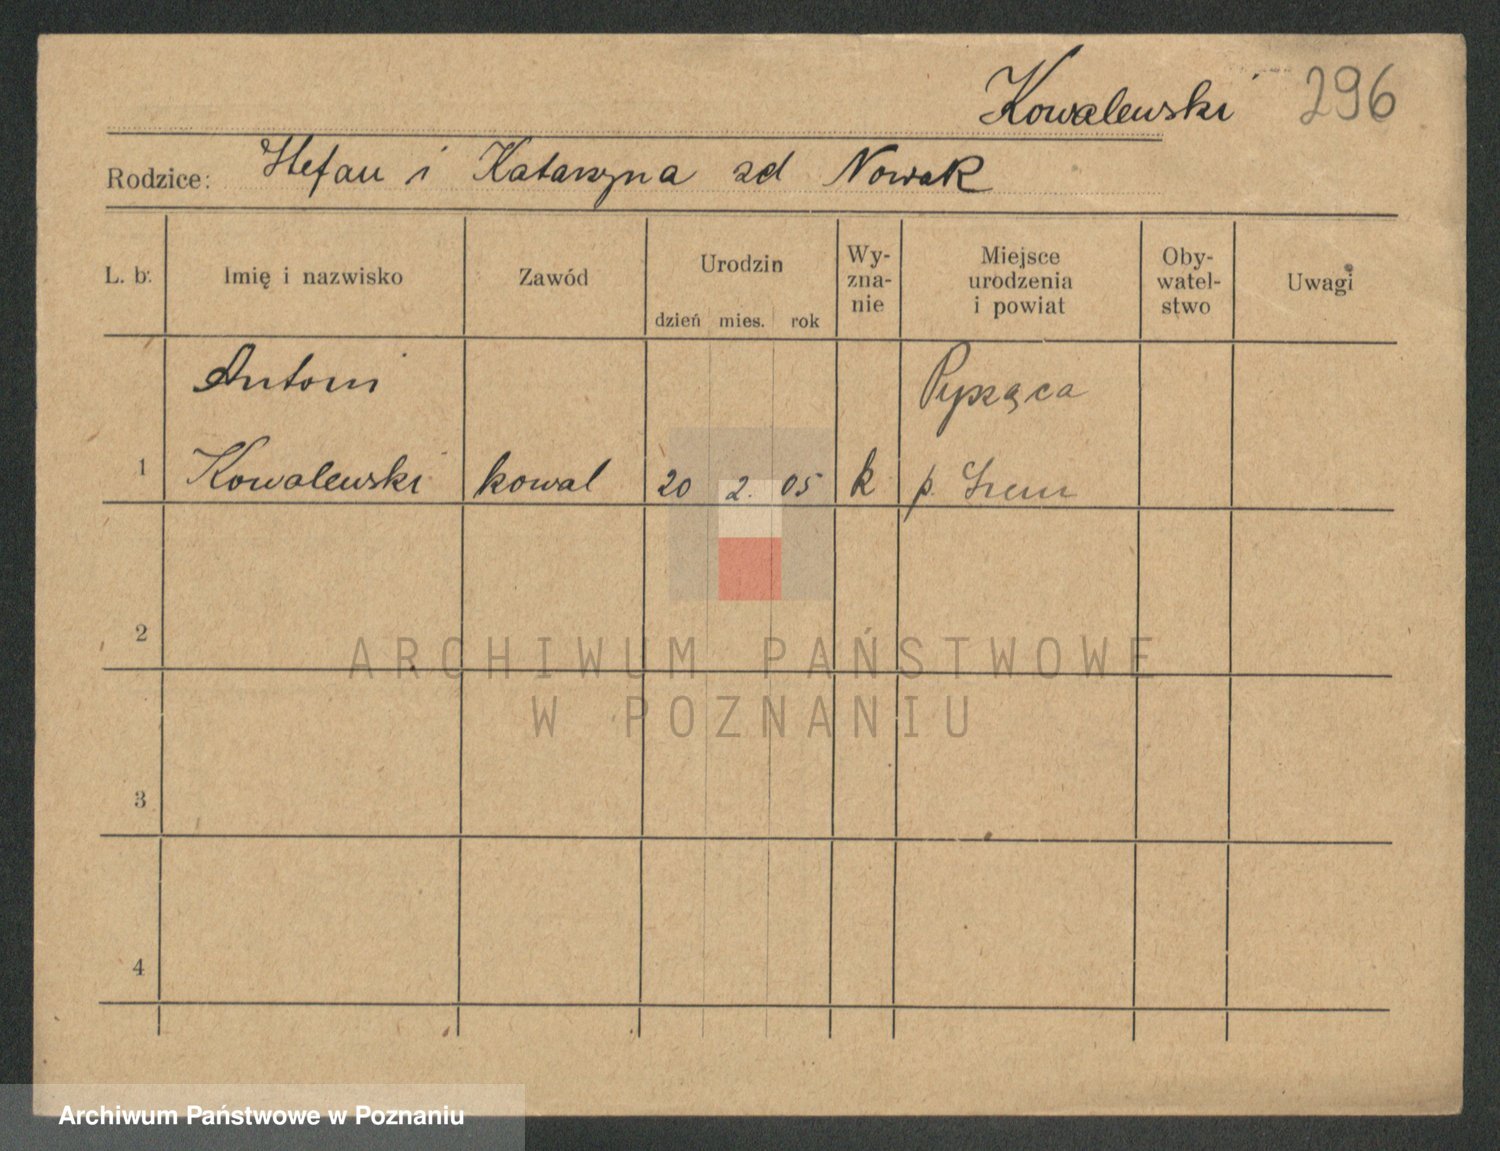 Kowalewski 296
Rodzice: Stefan i Katarzyna zd Nowak
L. b. Imię i nazwisko Zawód Urodzin dzień mies. rok Wy-zna-nie Miejsce urodzenia i powiat Oby-watel-stwo Uwagi
Antoni Pysząca
1 Kowalewski kowal 20 2. 05 k p. Śrem
2
ARCHIWUM PAŃSTWOWE
W POZNANIU
3
4
Archiwum Państwowe w Poznaniu